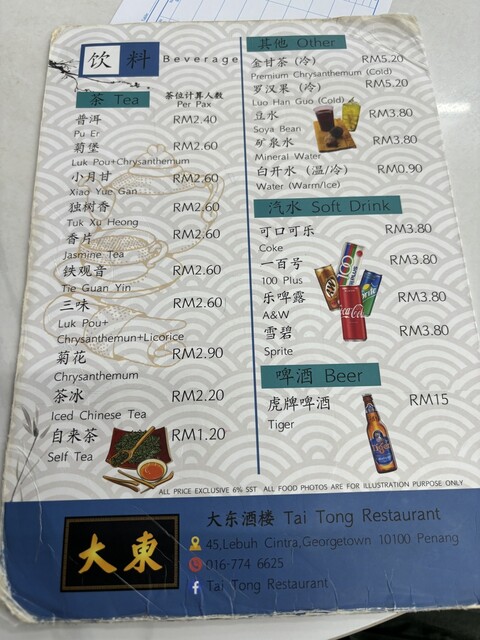 饮料 Beverage
茶 Tea 茶位计算人数
Per Pax
普洱 RM2.40
Pu Er
菊堡 RM2.60
Luk Pou+Chrysanthemum
小月甘 RM2.60
Xiao Yue Gan
独树香 RM2.60
Tuk Xu Heong
香片 RM2.60
Jasmine Tea
鉄观音 RM2.60
Tie Guan Yin
三味 RM2.60
Luk Pou+
Chrysanthemun+Licorice
菊花 RM2.90
Chrysanthemum
茶冰 RM2.20
Iced Chinese Tea
自来茶 RM1.20
Self Tea
其他 Other
金甘茶 (冷) RM5.20
Premium Chrysanthemum (Cold)
罗汉果 (冷) RM5.20
Luo Han Guo (Cold)
豆水 RM3.80
Soya Bean
矿泉水 RM3.80
Mineral Water
白开水 (温/冷) RM0.90
Water (Warm/Ice)
汽水 Soft Drink
可口可乐 RM3.80
Coke
一百号 RM3.80
100 Plus
乐啤露 RM3.80
A&W
雪碧 RM3.80
Sprite
啤酒 Beer
虎牌啤酒 RM15
Tiger
ALL PRICE EXCLUSIVE 6% SST ALL FOOD PHOTOS ARE FOR ILLUSTRATION PURPOSE ONLY
大東
大东酒楼 Tai Tong Restaurant
45,Lebuh Cintra,Georgetown 10100 Penang
016-774 6625
Tai Tong Restaurant